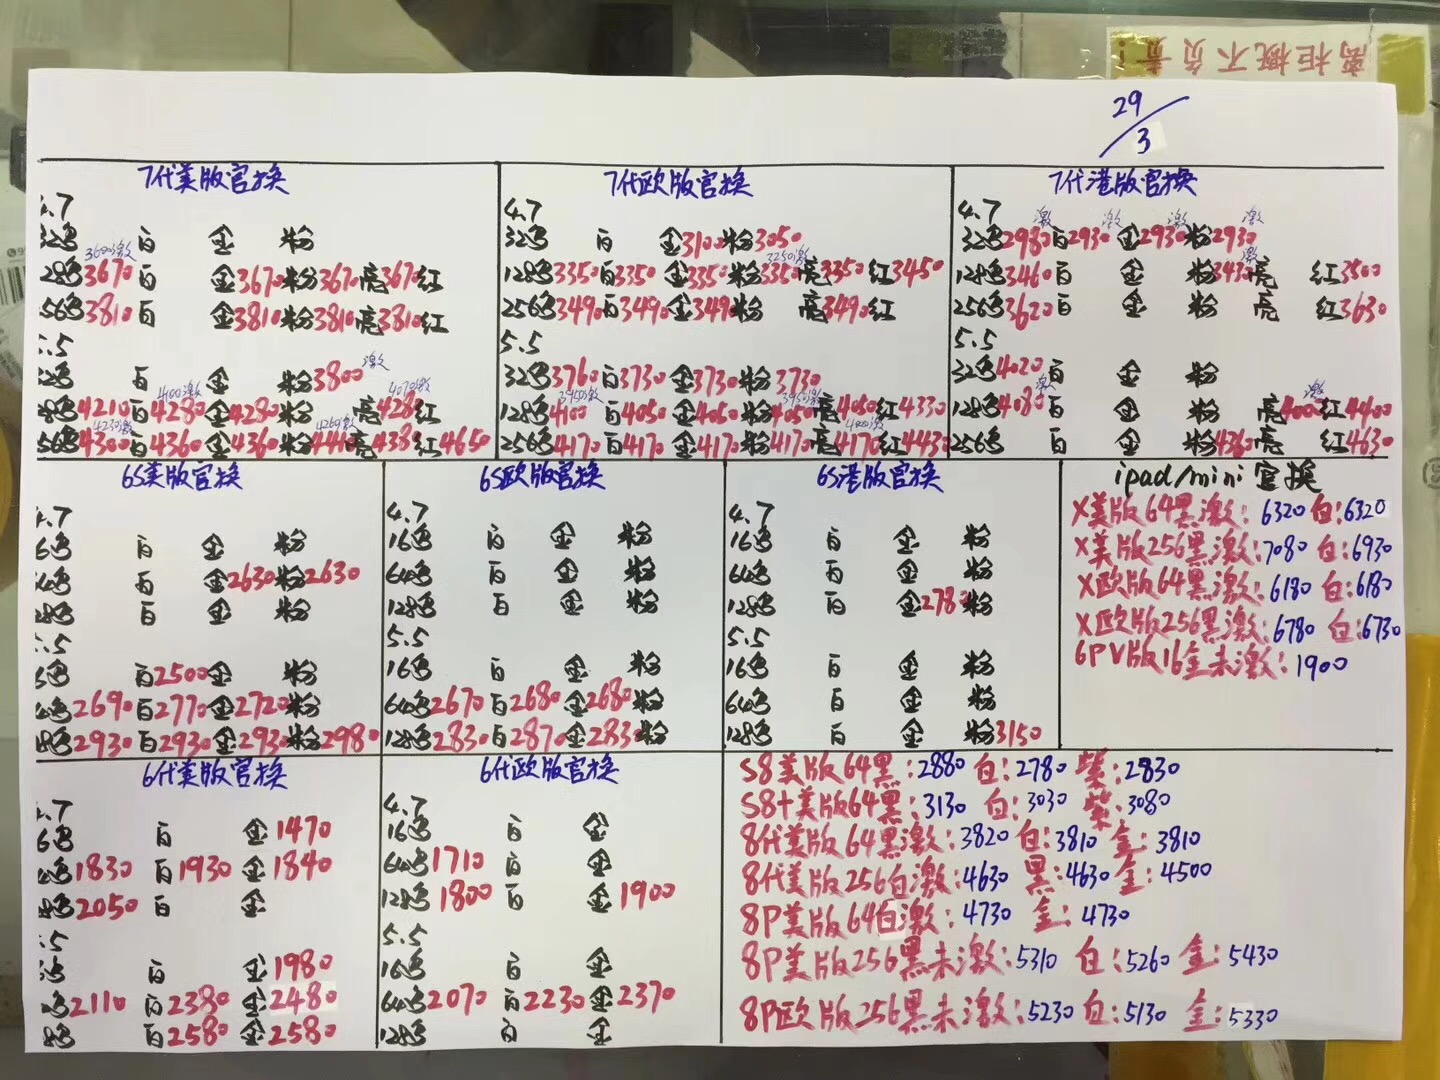 离柜概不负责！
29/3
7代美版官换
.7
32G 3600激 白 金 粉
28G 3670 白 金3670 粉3670 亮3670 红
56G 3810 白 金3810 粉3810 亮3810 红
.5
32G 白 金 粉3800激
28G 4210 白4280 1400激 金4280 粉 亮428 4070激 红
56G 4300 4230激 白4360 金4360 粉444 4260激 亮438 红4650
7代欧版官换
4.7
32G 白 金3100 粉3050
128G 3350 白3350 金335 粉335 3250激 亮3350 红3450
256G 3490 白3490 金349 粉 亮3490 红
5.5
32G 3760 白3730 金3730 粉3730
128G 4100 3950激 白4050 金4050 粉4050 3950激 亮4050 红4330
256G 4170 白4170 金4170 粉4170 亮4170 红4430
7代港版官换
4.7
32G 2980激 白2930激 金2930激 粉2930激
128G 3460 白 金 粉3430激 亮 红3500
256G 3620 白 金 粉 亮 红3630
5.5
32G 4020 白 金 粉
128G 4080激 白 金 粉 亮400激 红4400
256G 白 金 粉4360 亮 红4630
6S美版官换
4.7
6G 白 金 粉
4G 白 金2630 粉2630
28G 白 金 粉
.5
6G 白2500 金 粉
4G 2690 白2770 金2720 粉
28G 2930 白2930 金2930 粉2980
6S欧版官换
4.7
16G 白 金 粉
64G 白 金 粉
128G 白 金 粉
5.5
16G 白 金 粉
64G 2670 白2680 金2680 粉
128G 2830 白2870 金2830 粉
6S港版官换
4.7
16G 白 金 粉
64G 白 金 粉
128G 白 金278 粉
5.5
16G 白 金 粉
64G 白 金 粉
128G 白 金 粉3150
ipad/mini官换
X美版64黑激：6320 白：6320
X美版256黑激：7080 白：6930
X欧版64黑激：6180 白：6180
X欧版256黑激：6780 白：6730
6PV版16金未激：1900
6代美版官换
4.7
6G 白 金1470
4G 1830 白1930 金1840
28G 2050 白 金
.5
6G 白 金1980
4G 2110 白2380 金2480
8G 白2580 金2580
6代欧版官换
4.7
16G 白 金
64G 1710 白 金
128G 1800 白 金1900
5.5
16G 白 金
64G 2070 白2230 金2370
128G 白 金
S8美版64黑：2880 白：2780 紫：2830
S8+美版64黑：3130 白：3030 紫：3080
8代美版64黑激：3820 白：3810 金：3810
8代美版256白激：4630 黑：4630 金：4500
8P美版64白激：4730 金：4730
8P美版256黑未激：5310 白：5260 金：5430
8P欧版256黑未激：5230 白：5130 金：5330